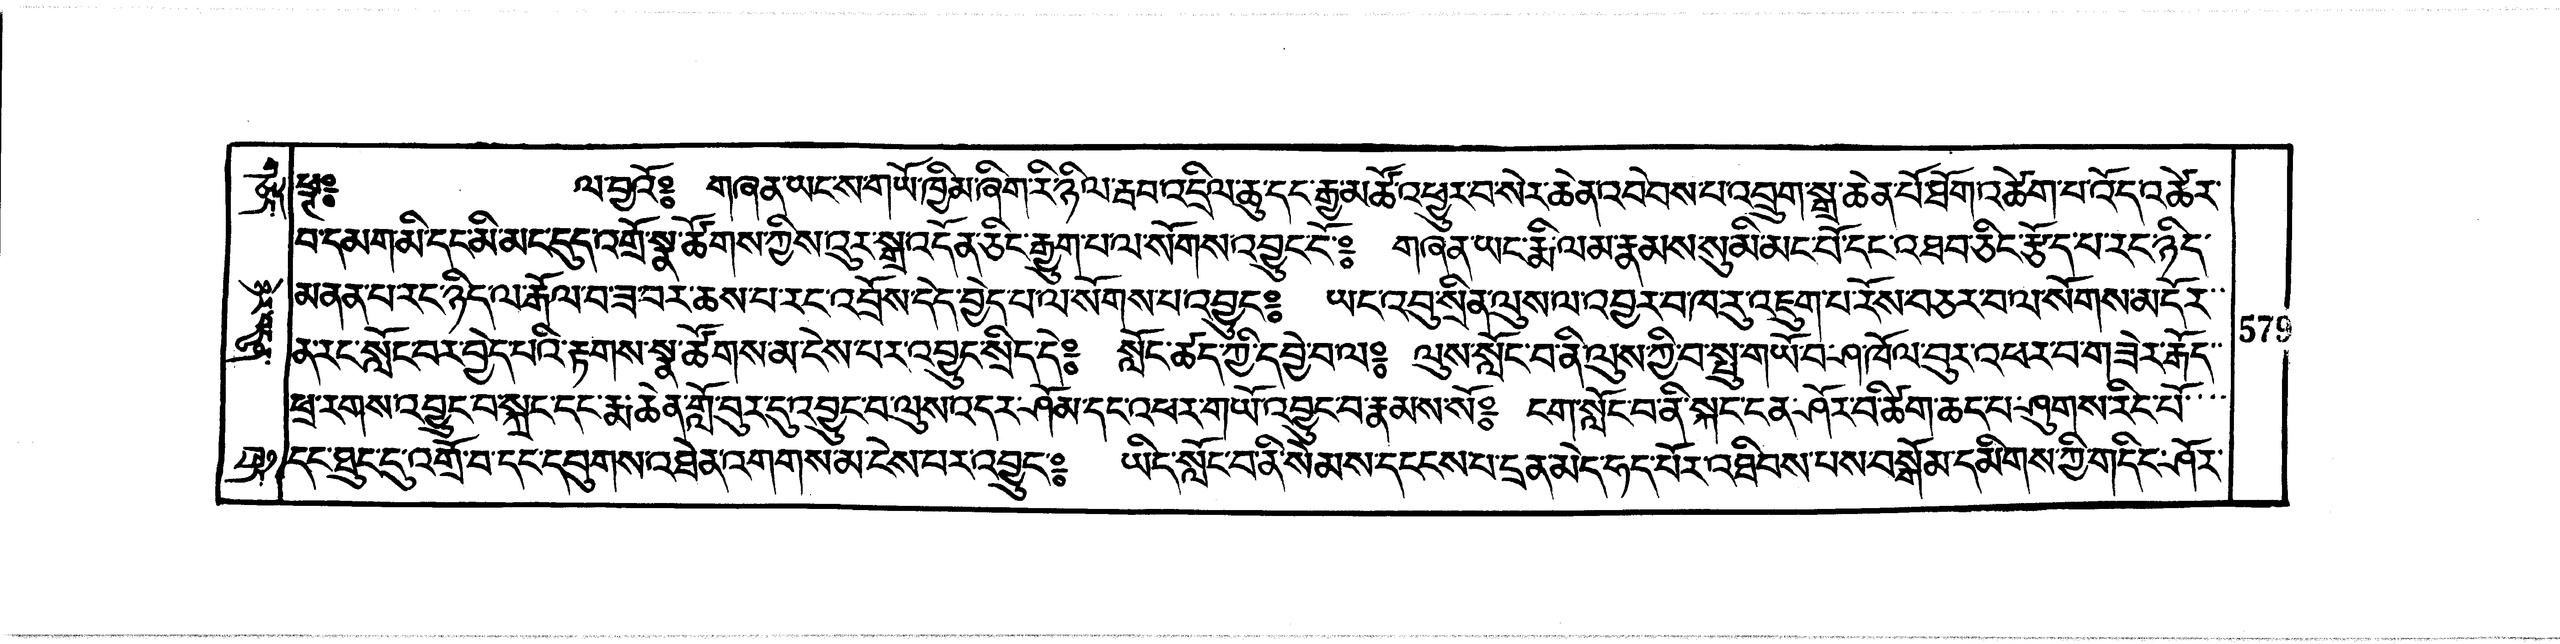 ཕྲ༔ ལ་བྱའོ༔ གཞན་ཡང་ས་གཡོ་ཁྱིམ་ཞིག་རི་ཉིལ་རྦབ་འདྲིལ་ཆུ་དང་རྒྱ་མཚོ་འཕྱུར་བ་སེར་ཆེན་འབེབས་པ་འབྲུག་སྒྲ་ཆེན་པོ་ཐོག་འཚེག་པ་འོད་འཚེར་
བ་དམག་མི་དང་མི་མང་དུད་འགྲོ་སྣ་ཚོགས་ཀྱིས་འུར་སྒྲ་འདོན་ཅིང་རྒྱུག་པ་ལ་སོགས་འབྱུང་ངོ་༔ གཞན་ཡང་རྨི་ལམ་རྣམས་སུ་མི་མང་པོ་དང་འཐབ་ཅིང་རྩོད་པ་རང་ཉིད་
མནན་པ་རང་ཉིད་ལ་རྒོལ་བ་ཟ་བར་ཆས་པ་རང་འབྲོས་དེད་བྱེད་པ་ལ་སོགས་པ་འབྱུང༔ ཡང་འབུ་སྲིན་ལུས་ལ་འབྱར་བ་ཁ་རུ་འཇུག་པ་རོས་བཅར་བ་ལ་སོགས་མ་དོར་
ན་རང་སློང་བར་བྱེད་པའི་རྟགས་སྣ་ཚོགས་མ་ངེས་པར་འབྱུང་སྲིད་དེ༔ སློང་ཚད་ཀྱི་དབྱེ་བ་ལ༔ ལུས་སློང་བ་ནི་ལུས་ཀྱི་བ་སྤུ་གཡོ་བ་ཤ་ཁོལ་བུར་འཕར་བ་གཟེར་རྒོད་
ཕྲ་རགས་འབྱུང་བ་སྐྲང་དང་རྨ་ཆེན་གློ་བུར་དུ་འབྱུང་བ་ལུས་འདར་ཤོམ་དང་འཕར་གཡོ་འབྱུང་བ་རྣམས་སོ༔ ངག་སློང་བ་ནི་སྐང་ངན་ཤོར་བ་ཚིག་ཆད་པ་ཤུགས་རིང་པོ་
དང་ཐུང་དུ་འགྲོ་བ་དང་དབུགས་འཐེན་འགགས་མ་ངེས་པར་འབྱུང་༔ ཡིད་སློང་བ་ནི་སེམས་དངངས་པ་དྲན་མེད་ཧད་པོར་འཐིབས་པས་བསྒོམ་དམིགས་ཀྱི་གདིང་ཤོར་
579